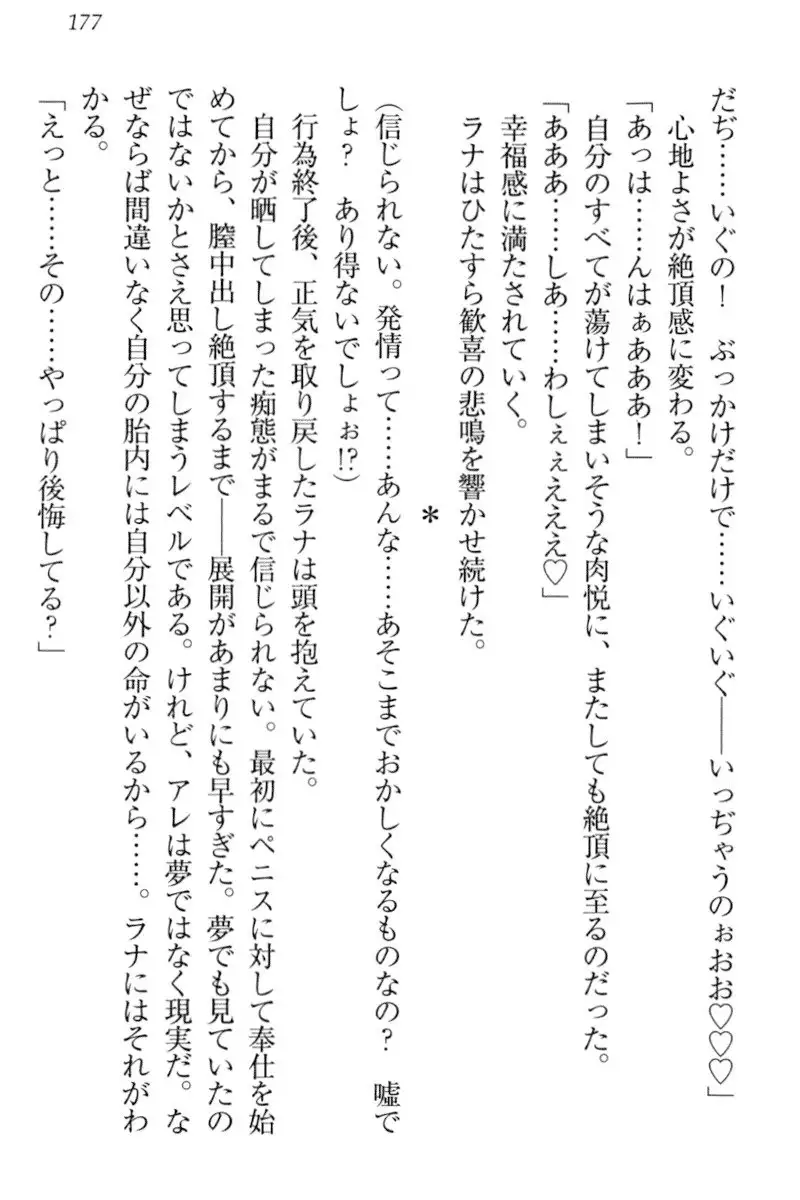 177
だぢ……いぐの！　ぶっかけだけで……いぐいぐ――いっぢゃうのぉおお♡♡♡」
　心地よさが絶頂感に変わる。
「あっは……んはぁあああ！」
　自分のすべてが蕩けてしまいそうな肉悦に、またしても絶頂に至るのだった。
「あああ……しあ……わしぇぇえええ♡」
　幸福感に満たされていく。
　ラナはひたすら歓喜の悲鳴を響かせ続けた。
＊
（信じられない。発情って……あんな……あそこまでおかしくなるものなの？　嘘で
しょ？　あり得ないでしょぉ!?）
　行為終了後、正気を取り戻したラナは頭を抱えていた。
　自分が晒してしまった痴態がまるで信じられない。最初にペニスに対して奉仕を始
めてから、膣中出し絶頂するまで――展開があまりにも早すぎた。夢でも見ていたの
ではないかとさえ思ってしまうレベルである。けれど、アレは夢ではなく現実だ。な
ぜならば間違いなく自分の胎内には自分以外の命がいるから……。ラナにはそれがわ
かる。
「えっと……その……やっぱり後悔してる？」